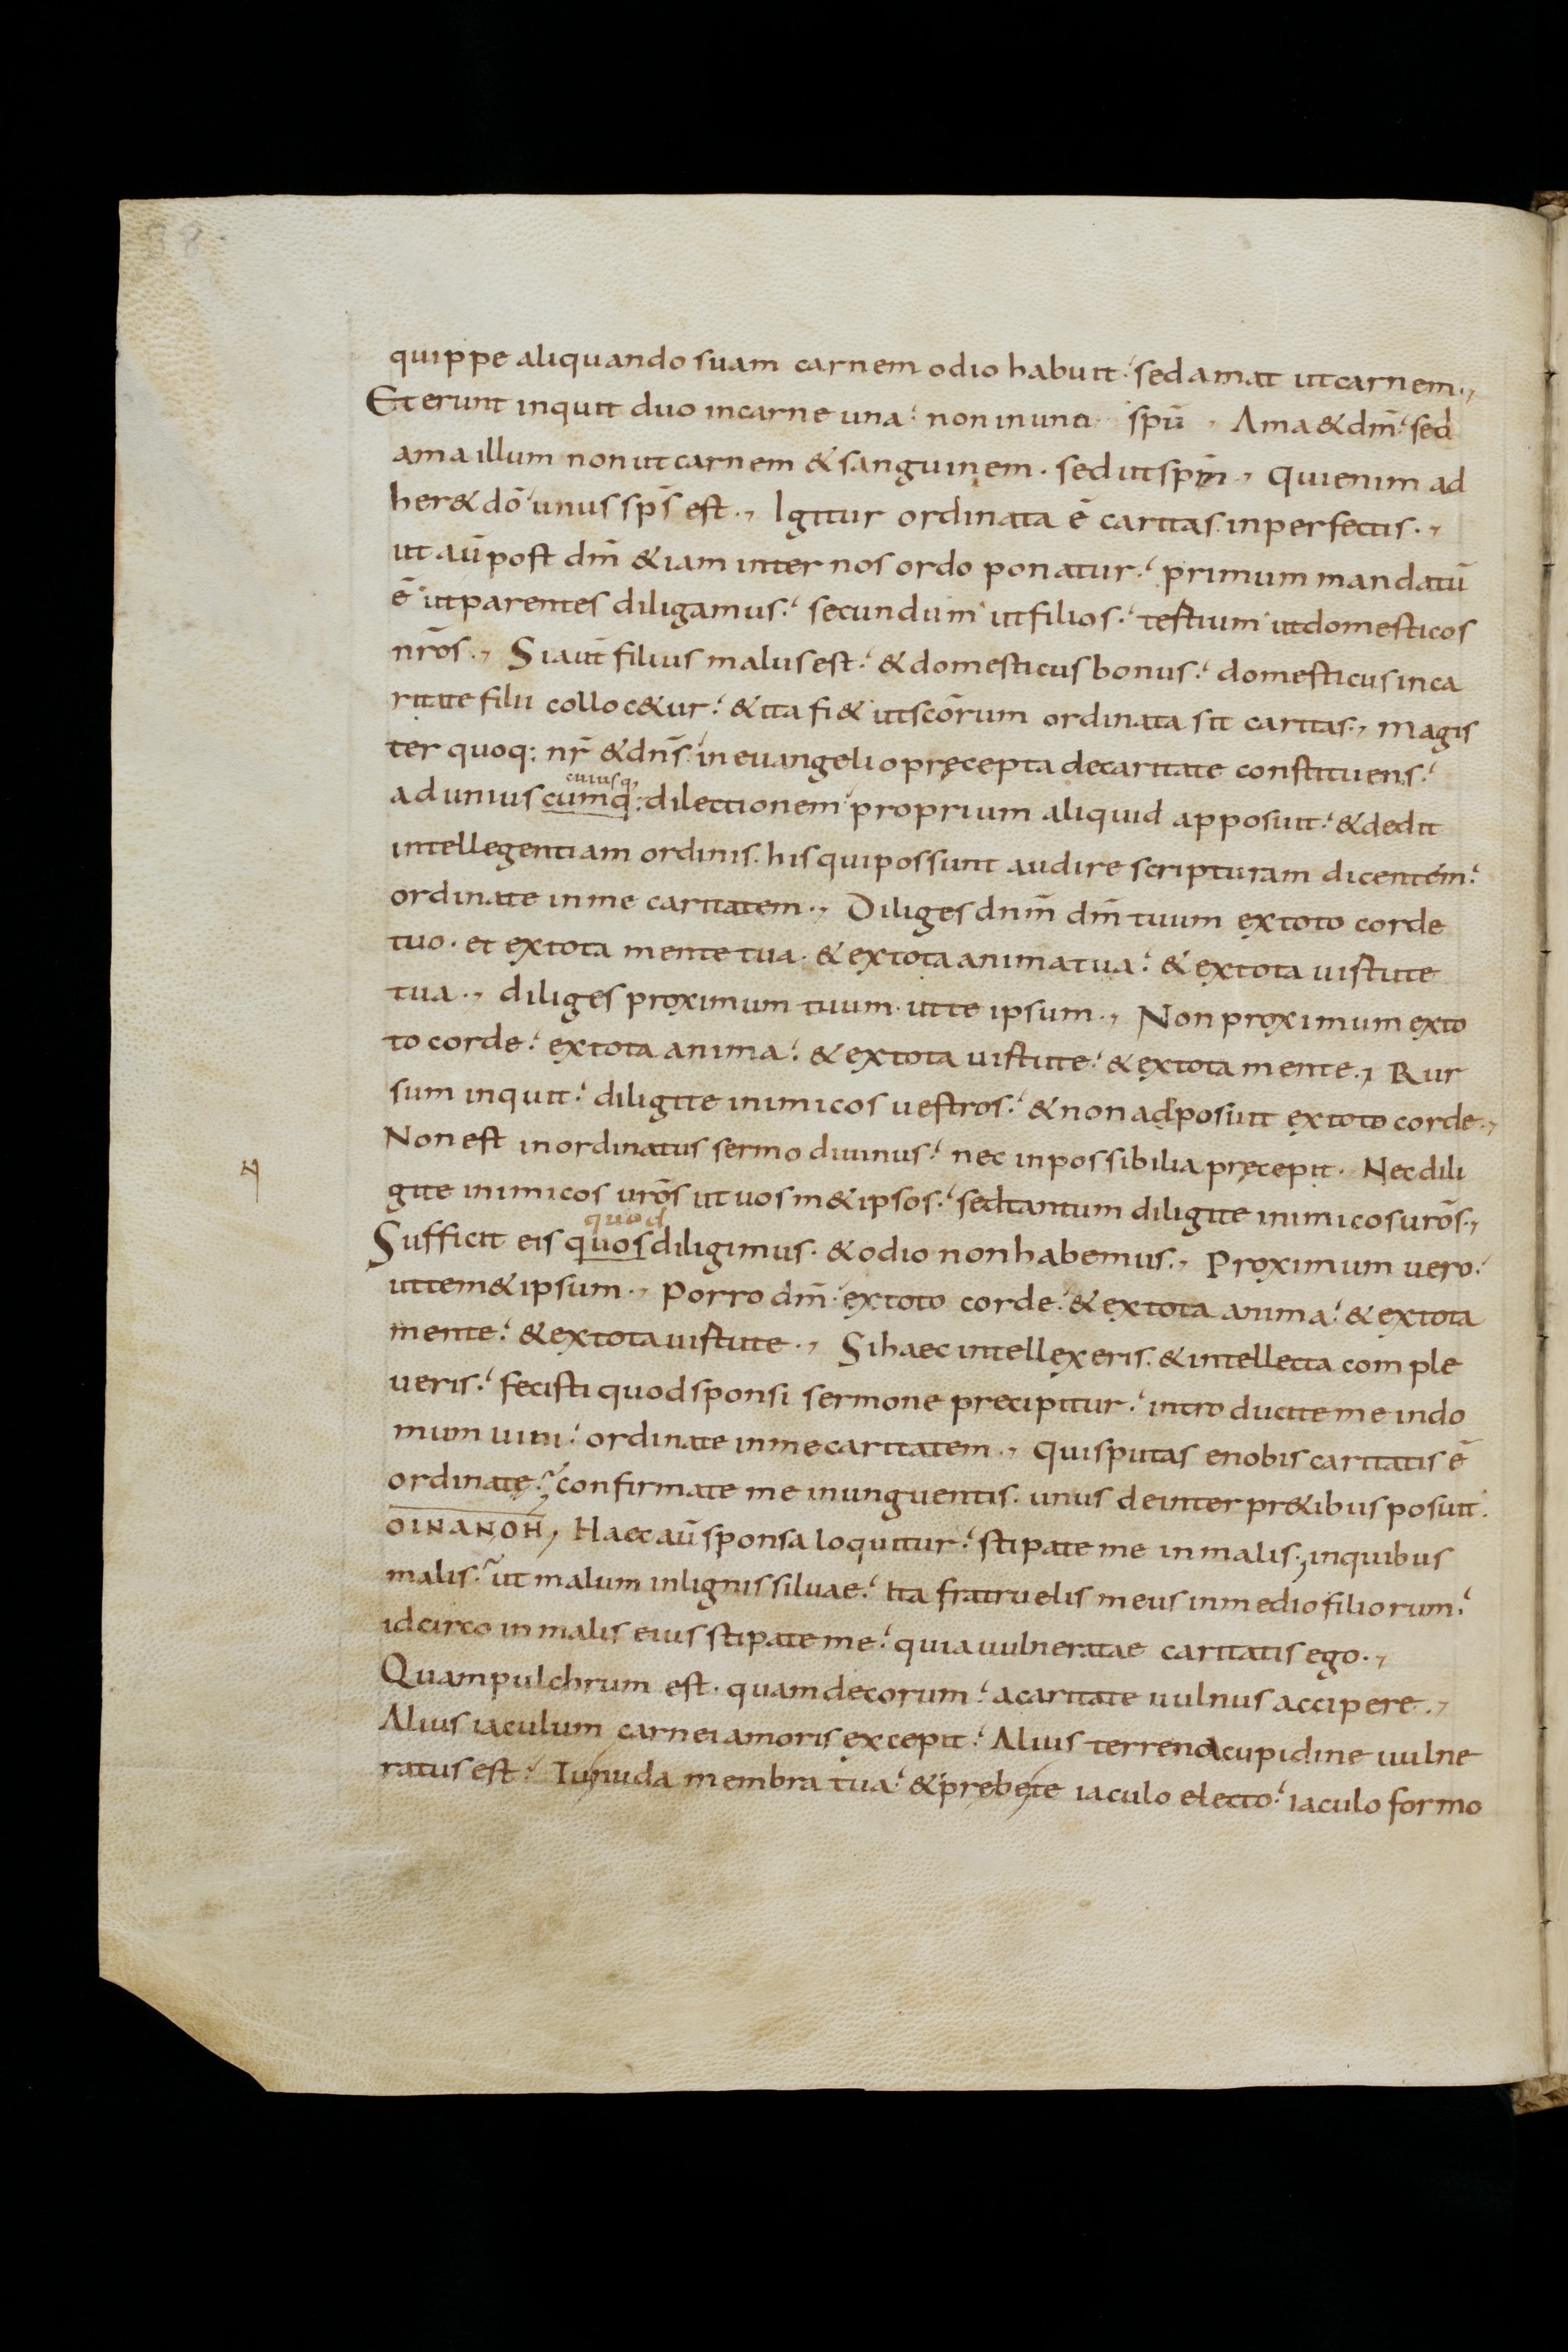 38
quippe aliquando suam carnem odio habuit. sed amat ut carnem.,
Et erunt inquit duo incarne una. non in uno spū, Ama & dm̄. sed
ama illum non ut carnem & sanguinem. sed ut spm̄., Qui enim ad
her& dō unus sps̄ est., Igitur ordinata ē caritas inperfectis.,
ut aū post dm̄ &iam inter nos ordo ponatur. primum mandatū
ē ut parentes diligamus. secundum ut filios. tertium ut domesticos
nr̄os., Si aut̄ filius malus est. & domesticus bonus. domesticus in ca
ritate filii colloc&ur. & ita fi& ut scōrum ordinata sit caritas., Magis
ter quoq: nr̄ & dn̄s. in euangelio pręcepta de caritate constituens.
cuiusq,
ad unius cumq: dilectionem proprium aliquid apposuit. & dedit
intellegentiam ordinis. his qui possunt audire scripturam dicentem.
ordinate in me caritatem., Diliges dnm̄ dm̄ tuum ex toto corde
tuo. et ex tota mente tua. & ex tota anima tua. & ex tota uirtute
tua., diliges proximum tuum. ut te ipsum., Non proximum ex to
to corde. ex tota anima. & ex tota uirtute. & ex tota mente., Rur
sum inquit. diligite inimicos uestros. & non adposuit ex toto corde.,
Non est inordinatus sermo diuinus. nec inpossibilia pręcepit. Nec dili
gite inimicos urōs ut uosm&ipsos. sed tantum diligite inimicos urōs.,
quod
Sufficit eis quos diligimus. & odio non habemus., Proximum uero.
ut tem&ipsum., Porro dm̄. ex toto corde. & ex tota anima. & ex tota
mente. & ex tota uirtute., Si haec intellexeris. & intellecta comple
ueris. fecisti quod sponsi sermone precipitur. introducite me in do
mum uini. ordinate in me caritatem., Quis putas e nobis caritatis ē
ordinate. confirmate me in unguentis. unus de interpr&ibus posuit.
ΟΙΝΑΝΟΗ, Haec aū sponsa loquitur. stipate me in malis., in quibus
malis. ut malum in lignis siluae. Ita fratruelis meus in medio filiorum.
idcirco in malis eius stipate me. quia uulneratae caritatis ego.,
Quam pulchrum est. quam decorum. a caritate uulnus accipere.,
Alius iaculum carnei amoris excepit. Alius terreno cupidine uulne
ratus est. Tu nuda membra tua. & prębete iaculo electo. iaculo formo